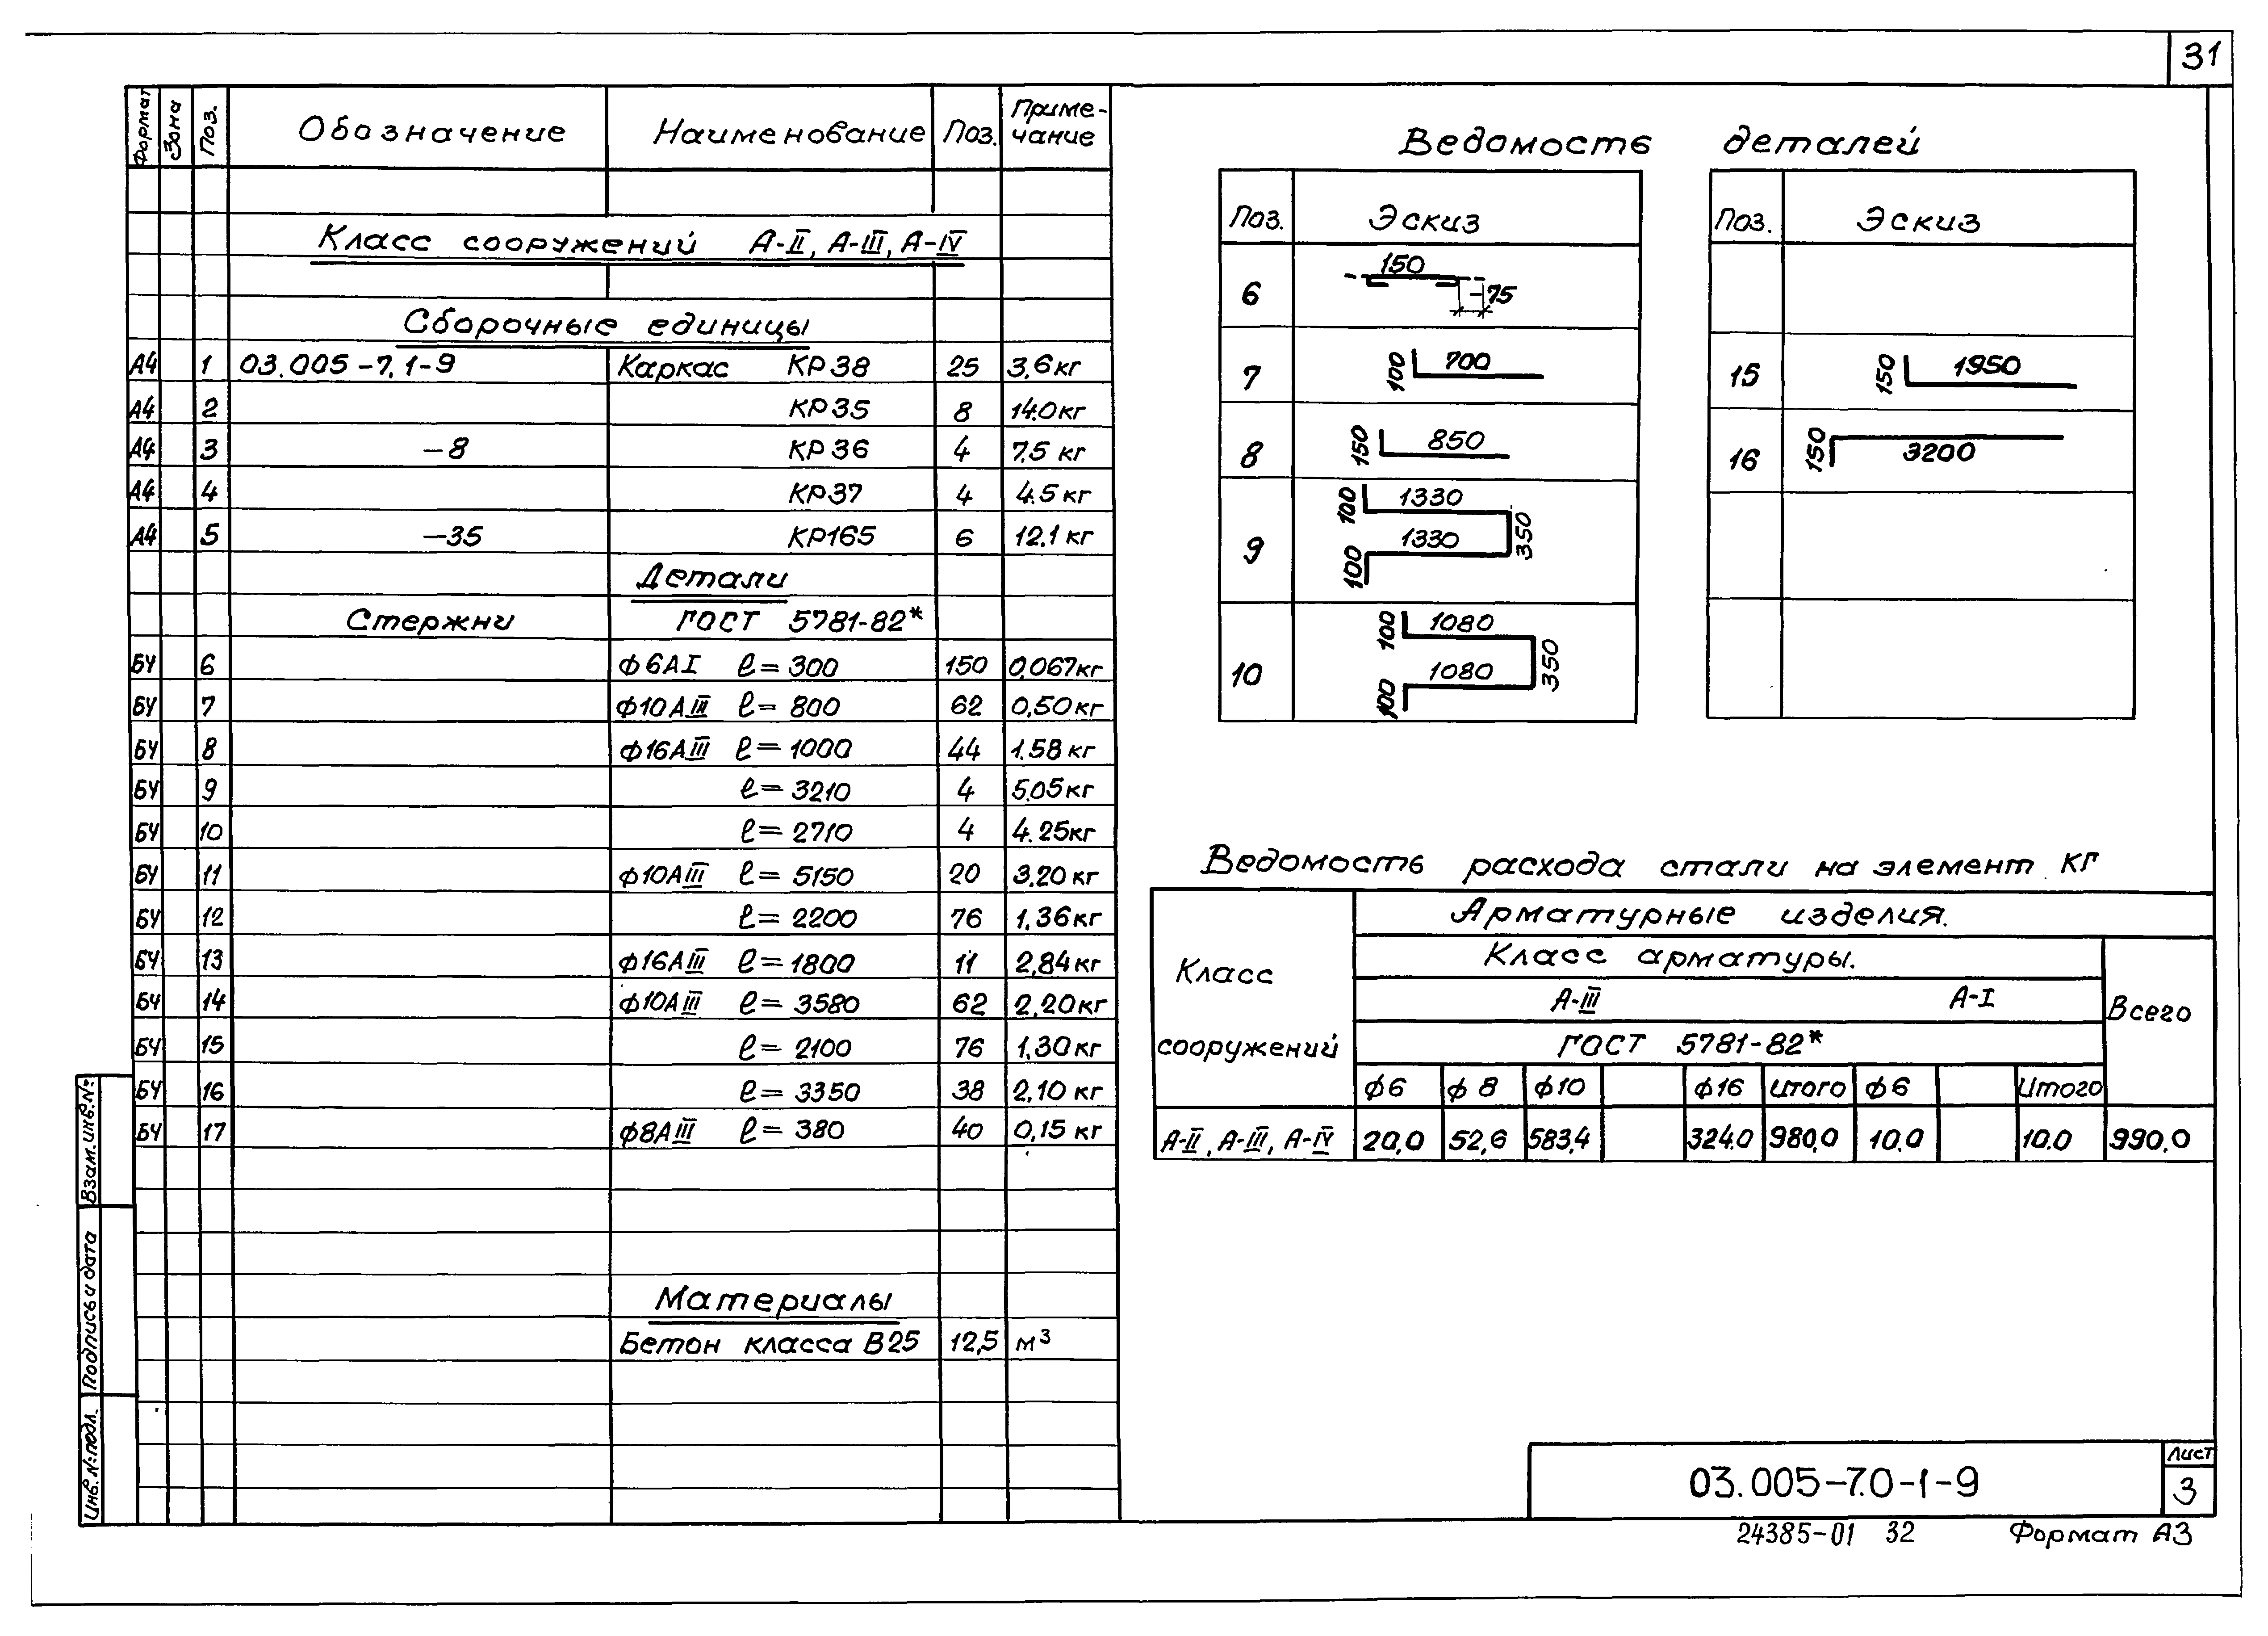 31
Формат Зона Поз. Обозначение Наименование Поз. Приме-чание
Класс сооружений А-II, А-III, А-IV
Сборочные единицы
А4 1 03.005-7.1-9 Каркас КР38 25 3,6кг
А4 2 КР35 8 14.0кг
А4 3 -8 КР36 4 7,5 кг
А4 4 КР37 4 4.5 кг
А4 5 -35 КР165 6 12,1 кг
Детали
Стержни ГОСТ 5781-82*
БЧ 6 ф6АI ℓ=300 150 0,067кг
БЧ 7 ф10АIII ℓ=800 62 0,50кг
БЧ 8 ф16АIII ℓ=1000 44 1.58кг
БЧ 9 ℓ=3210 4 5.05кг
БЧ 10 ℓ=2710 4 4.25кг
БЧ 11 ф10АIII ℓ=5150 20 3.20кг
БЧ 12 ℓ=2200 76 1,36кг
БЧ 13 ф16АIII ℓ=1800 11 2,84кг
БЧ 14 ф10АIII ℓ=3580 62 2,20кг
БЧ 15 ℓ=2100 76 1,30кг
БЧ 16 ℓ=3350 38 2,10 кг
БЧ 17 ф8АIII ℓ=380 40 0,15 кг
Материалы
Бетон класса В25 12,5 м³
Ведомость деталей
Поз. Эскиз
6 150 75
7 100 700
8 150 850
9 100 1330 1330 100 350
10 100 1080 1080 100 350
Поз. Эскиз
15 150 1950
16 150 3200
Ведомость расхода стали на элемент кг
Класс сооружений
Арматурные изделия.
Класс арматуры.
А-III А-I Всего
ГОСТ 5781-82*
ф6 ф8 ф10 ф16 итого ф6 Итого
А-II, А-III, А-IV 20,0 52,6 583,4 324.0 980,0 10.0 10.0 990,0
Взам.инв.№
Подпись и дата
Инв.№подл.
03.005-7.0-1-9
Лист
3
24385-01 32 Формат А3